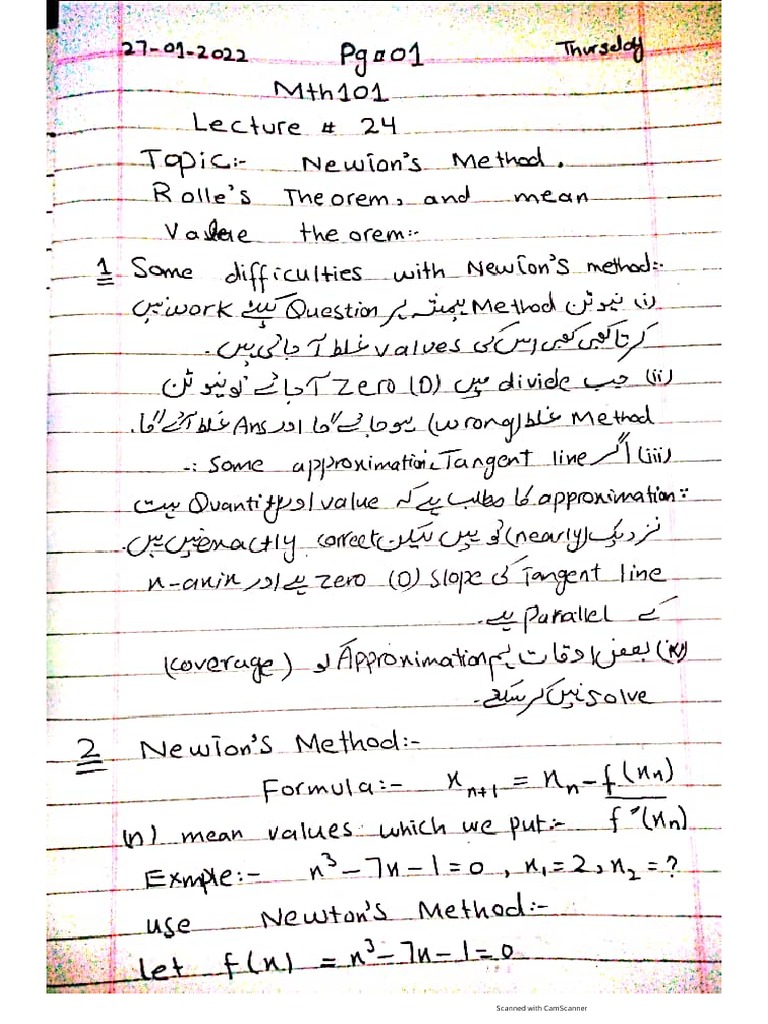 27-01-2022 Pg#01 Thursday
Mth101
Lecture # 24
Topic:- Newton's Method.
Rolle's Theorem, and mean
Value theorem:-
1 Some difficulties with Newton's method:-
(i) نیوٹن Method ہمیشہ ہر Question کیلئے work نہیں
کرتا کبھی کبھی اس کی values غلط آ جاتی ہیں۔
(ii) جب divide میں (0) zero آ جائے تو نیوٹن
Method غلط (wrong) ہو جائے گا اور Ans غلط آئے گا۔
(iii) اگر Some approximation, Tangent line :-
approximation: کا مطلب ہے کہ value اور Quantity بہت
نزدیک (nearly) تو ہیں لیکن exactly correct نہیں ہیں۔
Tangent line کی slope (0) zero ہے اور x-axis
کے Parallel ہے۔
(iv) بعض اوقات ہم Approximation کو (coverage)
solve نہیں کر سکتے۔
2 Newton's Method:-
Formula:- x_{n+1} = x_n - f(x_n) / f'(x_n)
(n) mean values which we put:-
Exmple:- x³-7x-1=0, x₁=2, x₂=?
use Newton's Method:-
let f(x) = x³-7x-1=0
Scanned with CamScanner